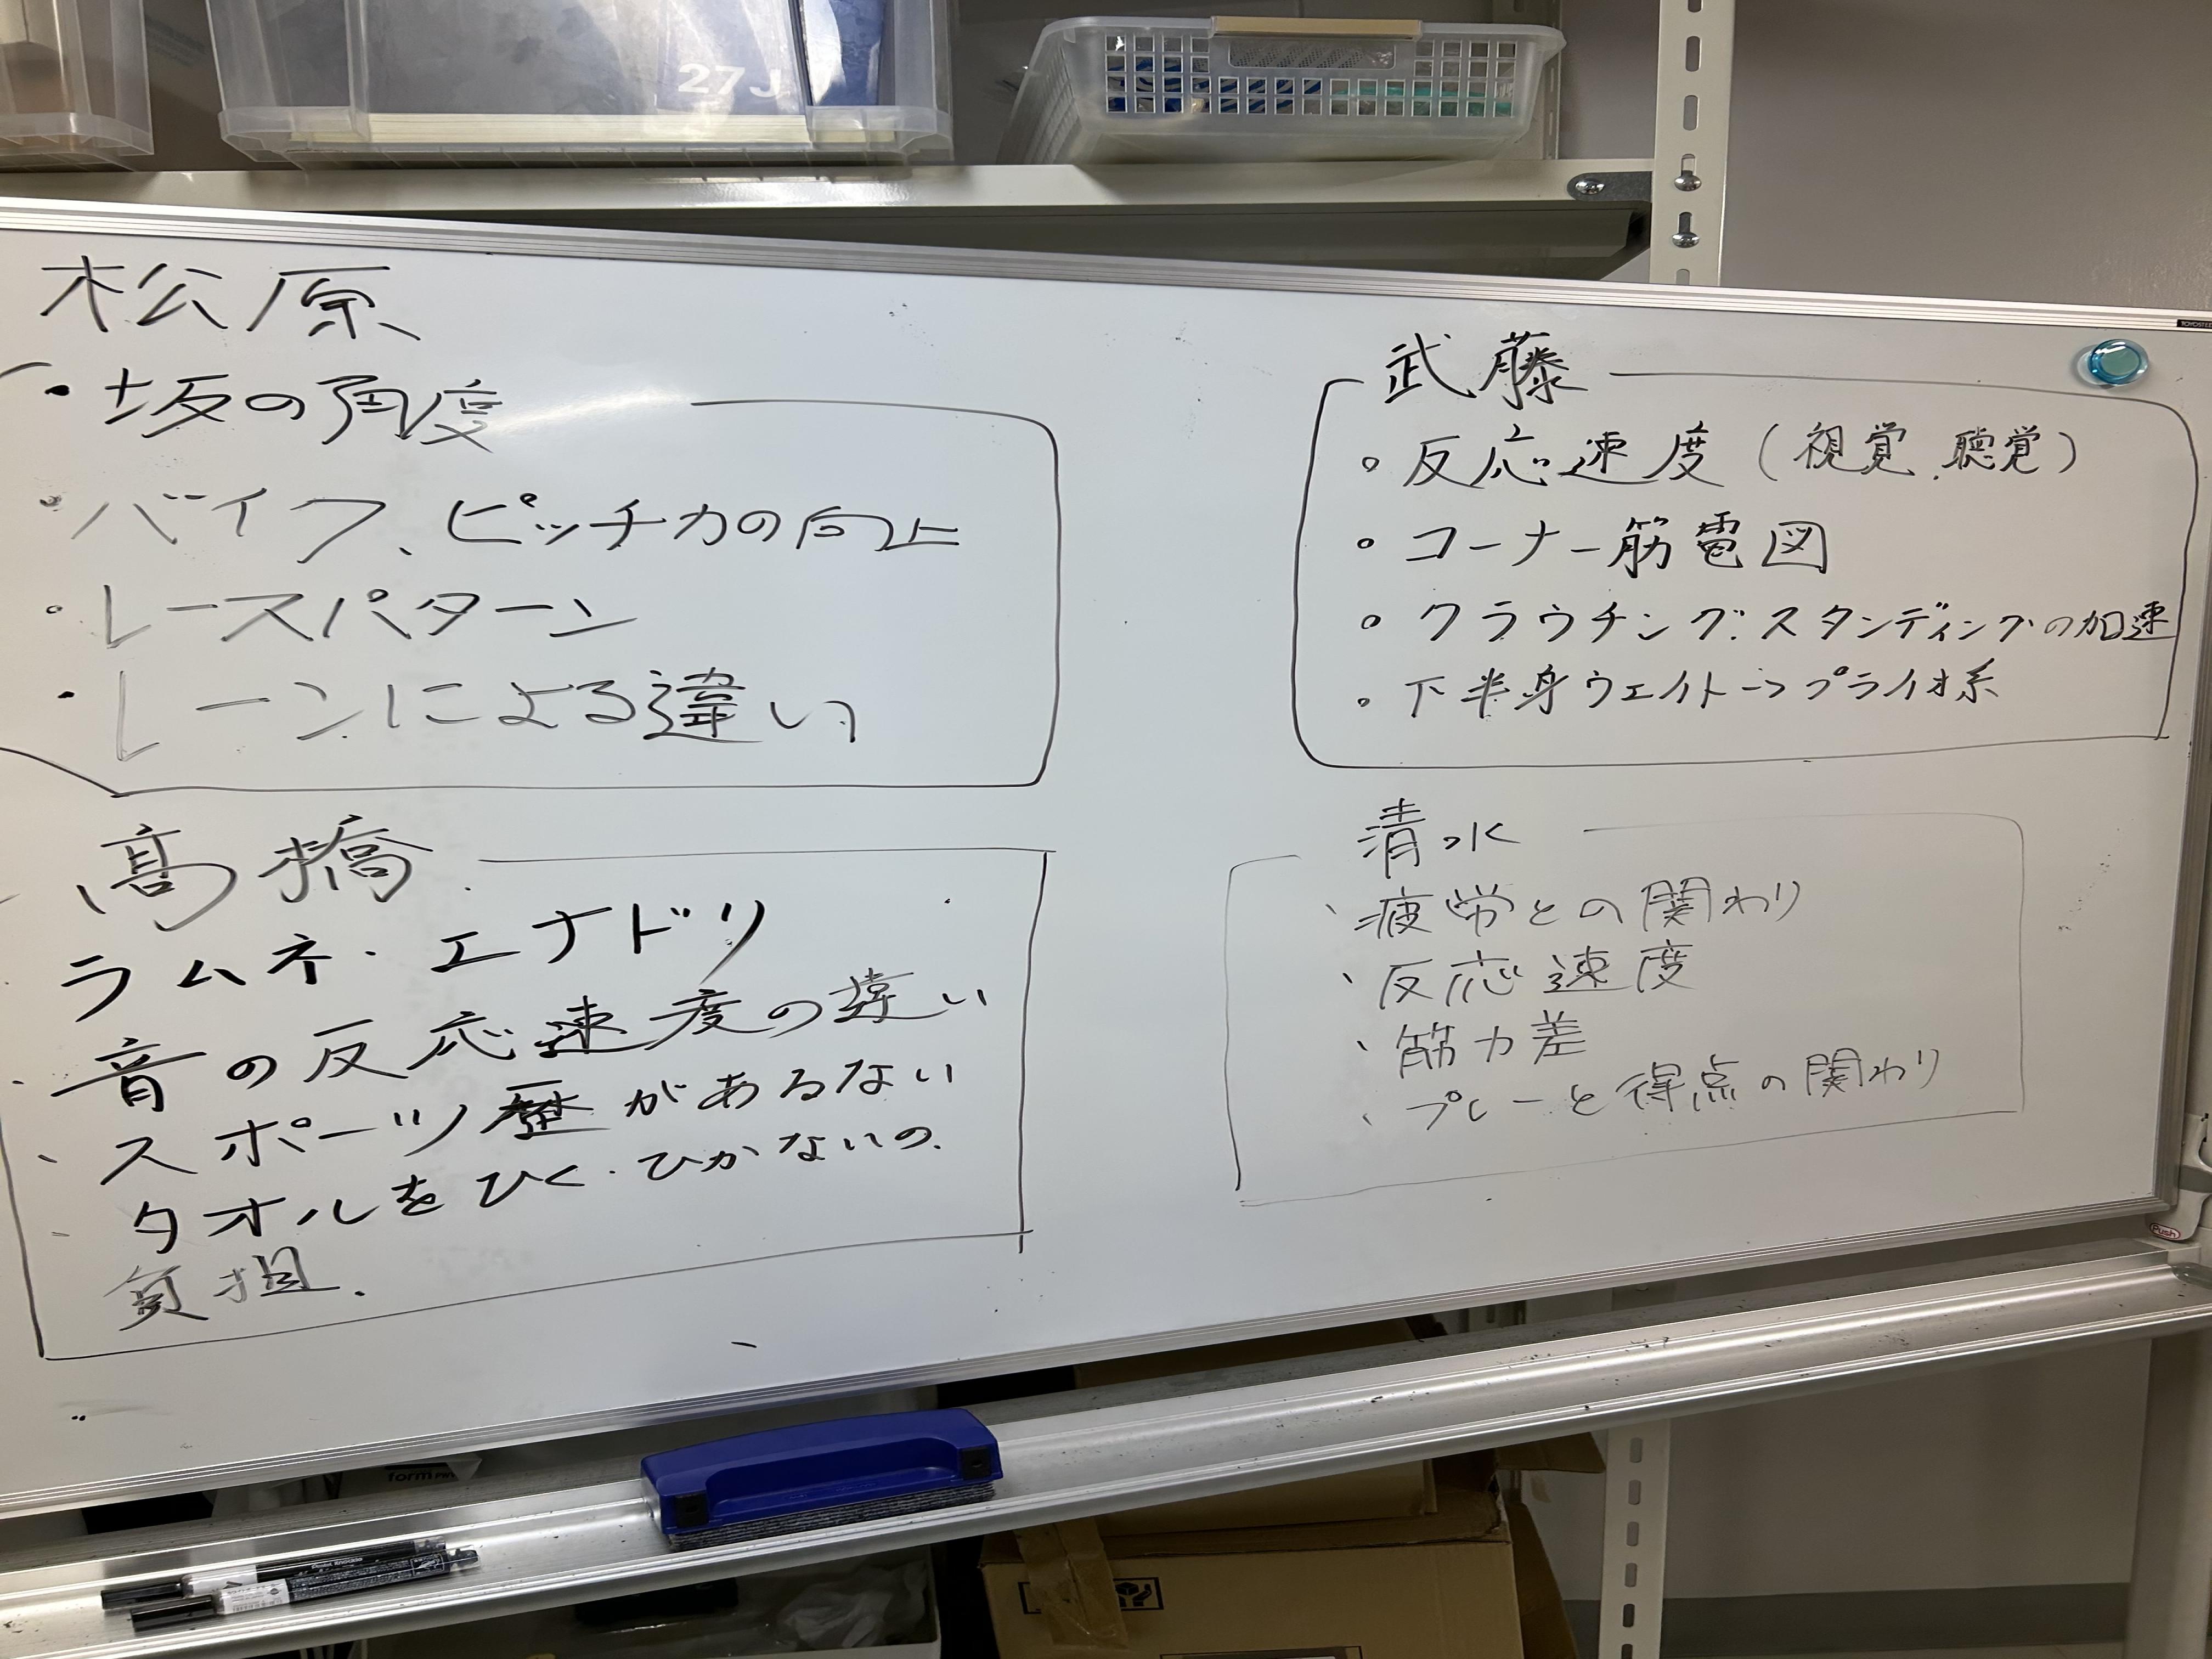 27J
松原
・坂の角度
・バイク、ピッチ力の向上
・レースパターン
・レーンによる違い
髙橋
・ラムネ・エナドリ
・音の反応速度の違い
・スポーツ歴があるない
・タオルをひく・ひかないの
負担.
武藤
・反応速度(視覚、聴覚)
・コーナー筋電図
・クラウチング・スタンディングの加速
・下半身ウェイト→プライオ系
清水
・疲労との関わり
・反応速度
・筋力差
・プレーと得点の関わり
Push
form